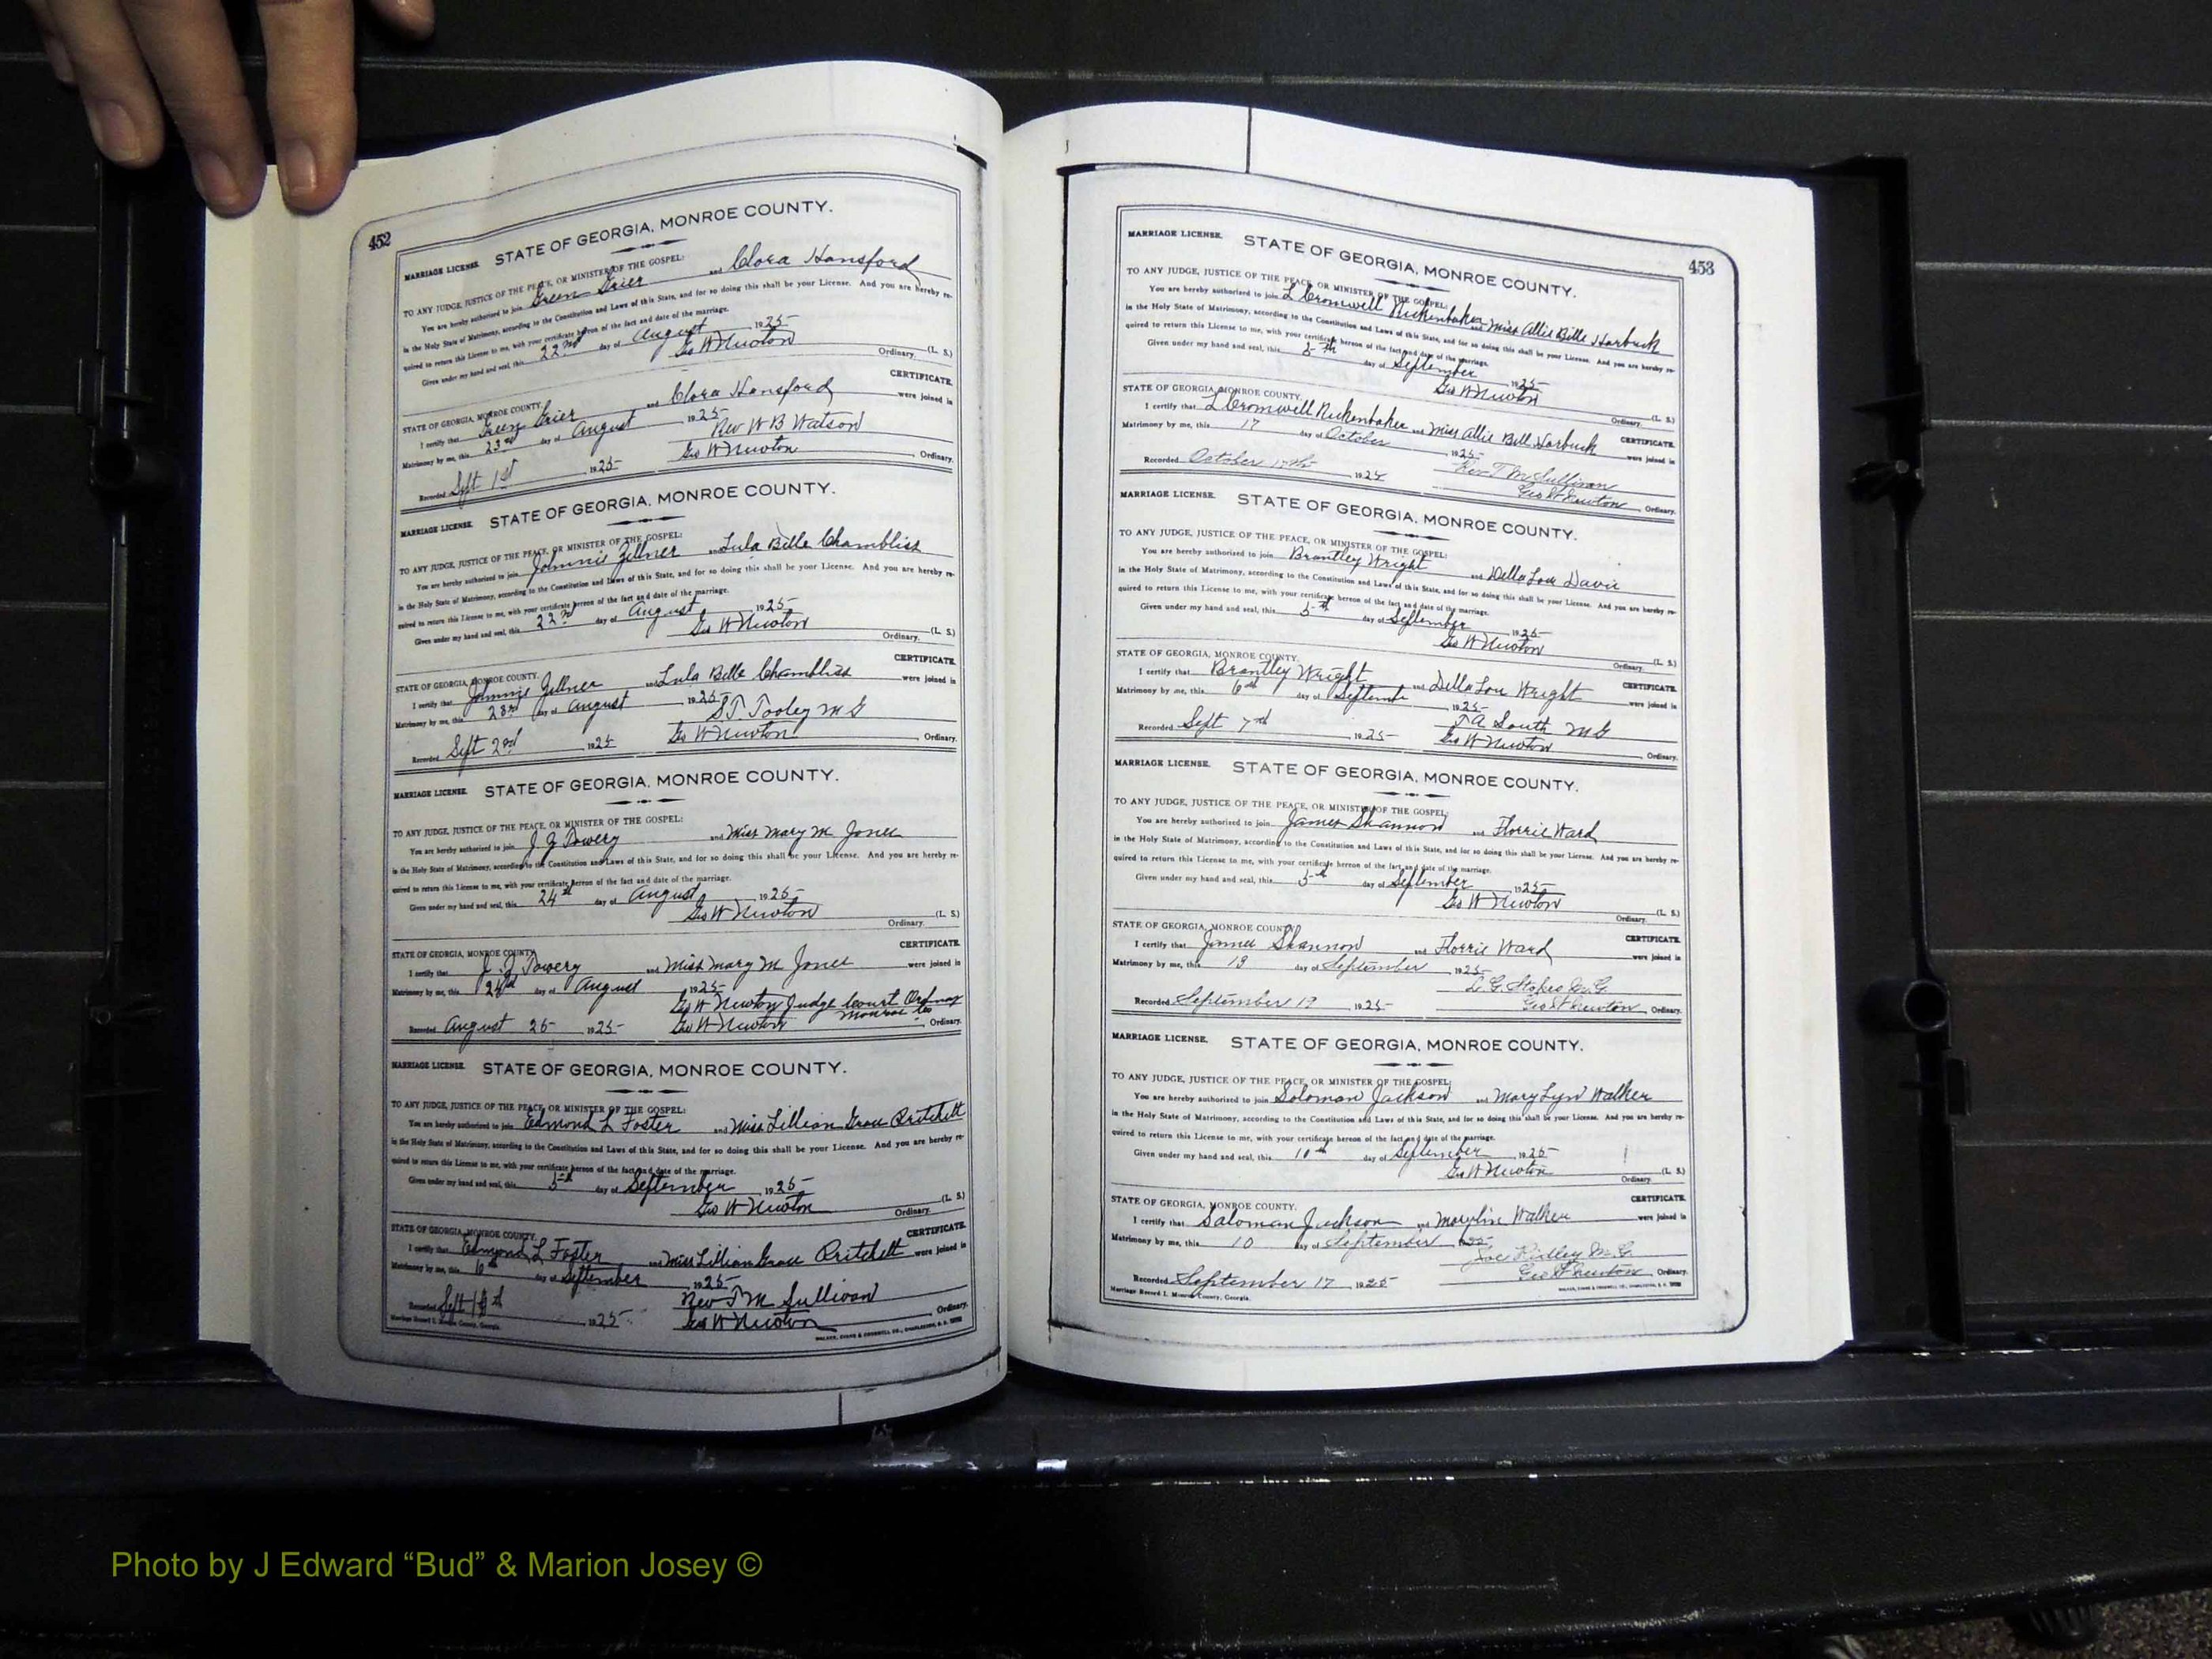 452
MARRIAGE LICENSE. STATE OF GEORGIA, MONROE COUNTY.
TO ANY JUDGE, JUSTICE OF THE PEACE, OR MINISTER OF THE GOSPEL:
You are hereby authorized to join Green Grier and Clora Hansford
in the Holy State of Matrimony, according to the Constitution and Laws of this State, and for so doing this shall be your License. And you are hereby re-
quired to return this License to me, with your certificate hereon of the fact and date of the marriage.
Given under my hand and seal, this 22nd day of August 1925
Geo W Newton (L. S.)
Ordinary.
STATE OF GEORGIA, MONROE COUNTY. CERTIFICATE.
I certify that Green Grier and Clora Hansford were joined in
Matrimony by me, this 23rd day of August 1925
Rev W B Watson
Recorded Sept 1st 1925 Geo W Newton Ordinary.
MARRIAGE LICENSE. STATE OF GEORGIA, MONROE COUNTY.
TO ANY JUDGE, JUSTICE OF THE PEACE, OR MINISTER OF THE GOSPEL:
You are hereby authorized to join Johnnie Zellner and Lula Belle Chambliss
in the Holy State of Matrimony, according to the Constitution and Laws of this State, and for so doing this shall be your License. And you are hereby re-
quired to return this License to me, with your certificate hereon of the fact and date of the marriage.
Given under my hand and seal, this 22nd day of August 1925
Geo W Newton (L. S.)
Ordinary.
STATE OF GEORGIA, MONROE COUNTY. CERTIFICATE.
I certify that Johnnie Zellner and Lula Belle Chambliss were joined in
Matrimony by me, this 23rd day of August 1925
S.T. Tooley M G
Recorded Sept 2nd 1925 Geo W Newton Ordinary.
MARRIAGE LICENSE. STATE OF GEORGIA, MONROE COUNTY.
TO ANY JUDGE, JUSTICE OF THE PEACE, OR MINISTER OF THE GOSPEL:
You are hereby authorized to join J. Z Towery and Miss Mary M Jones
in the Holy State of Matrimony, according to the Constitution and Laws of this State, and for so doing this shall be your License. And you are hereby re-
quired to return this License to me, with your certificate hereon of the fact and date of the marriage.
Given under my hand and seal, this 24th day of August 1925
Geo W Newton (L. S.)
Ordinary.
STATE OF GEORGIA, MONROE COUNTY. CERTIFICATE.
I certify that J. Z Towery and Miss Mary M Jones were joined in
Matrimony by me, this 24th day of August 1925
Geo W Newton Judge Court Ordinary
Monroe Co
Recorded August 25 1925 Geo W Newton Ordinary.
MARRIAGE LICENSE. STATE OF GEORGIA, MONROE COUNTY.
TO ANY JUDGE, JUSTICE OF THE PEACE, OR MINISTER OF THE GOSPEL:
You are hereby authorized to join Edmond L Foster and Miss Lillian Grace Pritchett
in the Holy State of Matrimony, according to the Constitution and Laws of this State, and for so doing this shall be your License. And you are hereby re-
quired to return this License to me, with your certificate hereon of the fact and date of the marriage.
Given under my hand and seal, this 5th day of September 1925
Geo W Newton (L. S.)
Ordinary.
STATE OF GEORGIA, MONROE COUNTY. CERTIFICATE.
I certify that Edmond L Foster and Miss Lillian Grace Pritchett were joined in
Matrimony by me, this 6th day of September 1925
Rev T M Sullivan
Recorded Sept 1925 Geo W Newton Ordinary.
Marriage Record I. Monroe County, Georgia.
453
MARRIAGE LICENSE. STATE OF GEORGIA, MONROE COUNTY.
TO ANY JUDGE, JUSTICE OF THE PEACE, OR MINISTER OF THE GOSPEL:
You are hereby authorized to join L Cromwell Rickenbaker and Miss Allie Belle Harbuck
in the Holy State of Matrimony, according to the Constitution and Laws of this State, and for so doing this shall be your License. And you are hereby re-
quired to return this License to me, with your certificate hereon of the fact and date of the marriage.
Given under my hand and seal, this 5th day of September 1925
Geo W Newton (L. S.)
Ordinary.
STATE OF GEORGIA, MONROE COUNTY. CERTIFICATE.
I certify that L Cromwell Rickenbaker and Miss Allie Bell Harbuck were joined in
Matrimony by me, this 17 day of October 1925
Rev T M Sullivan
Recorded October 17th 1925 Geo W Newton Ordinary.
MARRIAGE LICENSE. STATE OF GEORGIA, MONROE COUNTY.
TO ANY JUDGE, JUSTICE OF THE PEACE, OR MINISTER OF THE GOSPEL:
You are hereby authorized to join Brantley Wright and Della Lou Davis
in the Holy State of Matrimony, according to the Constitution and Laws of this State, and for so doing this shall be your License. And you are hereby re-
quired to return this License to me, with your certificate hereon of the fact and date of the marriage.
Given under my hand and seal, this 5th day of September 1925
Geo W Newton (L. S.)
Ordinary.
STATE OF GEORGIA, MONROE COUNTY. CERTIFICATE.
I certify that Brantley Wright and Della Lou Wright were joined in
Matrimony by me, this 6th day of Septembe 1925
T A South M G
Recorded Sept 7th 1925 Geo W Newton Ordinary.
MARRIAGE LICENSE. STATE OF GEORGIA, MONROE COUNTY.
TO ANY JUDGE, JUSTICE OF THE PEACE, OR MINISTER OF THE GOSPEL:
You are hereby authorized to join James Shannon and Florrie Ward
in the Holy State of Matrimony, according to the Constitution and Laws of this State, and for so doing this shall be your License. And you are hereby re-
quired to return this License to me, with your certificate hereon of the fact and date of the marriage.
Given under my hand and seal, this 5th day of September 1925
Geo W Newton (L. S.)
Ordinary.
STATE OF GEORGIA, MONROE COUNTY. CERTIFICATE.
I certify that James Shannon and Florrie Ward were joined in
Matrimony by me, this 13 day of September 1925
L. G. Stokes M. G.
Recorded September 19 1925 Geo W Newton Ordinary.
MARRIAGE LICENSE. STATE OF GEORGIA, MONROE COUNTY.
TO ANY JUDGE, JUSTICE OF THE PEACE, OR MINISTER OF THE GOSPEL:
You are hereby authorized to join Soloman Jackson and Mary Lyn Walker
in the Holy State of Matrimony, according to the Constitution and Laws of this State, and for so doing this shall be your License. And you are hereby re-
quired to return this License to me, with your certificate hereon of the fact and date of the marriage.
Given under my hand and seal, this 10th day of September 1925
Geo W Newton (L. S.)
Ordinary.
STATE OF GEORGIA, MONROE COUNTY. CERTIFICATE.
I certify that Saloman Jackson and Marylin Walker were joined in
Matrimony by me, this 10 day of September 1925
Joe Ridley M. G.
Recorded September 17 1925 Geo W Newton Ordinary.
Marriage Record I. Monroe County, Georgia.
Photo by J Edward “Bud” & Marion Josey ©